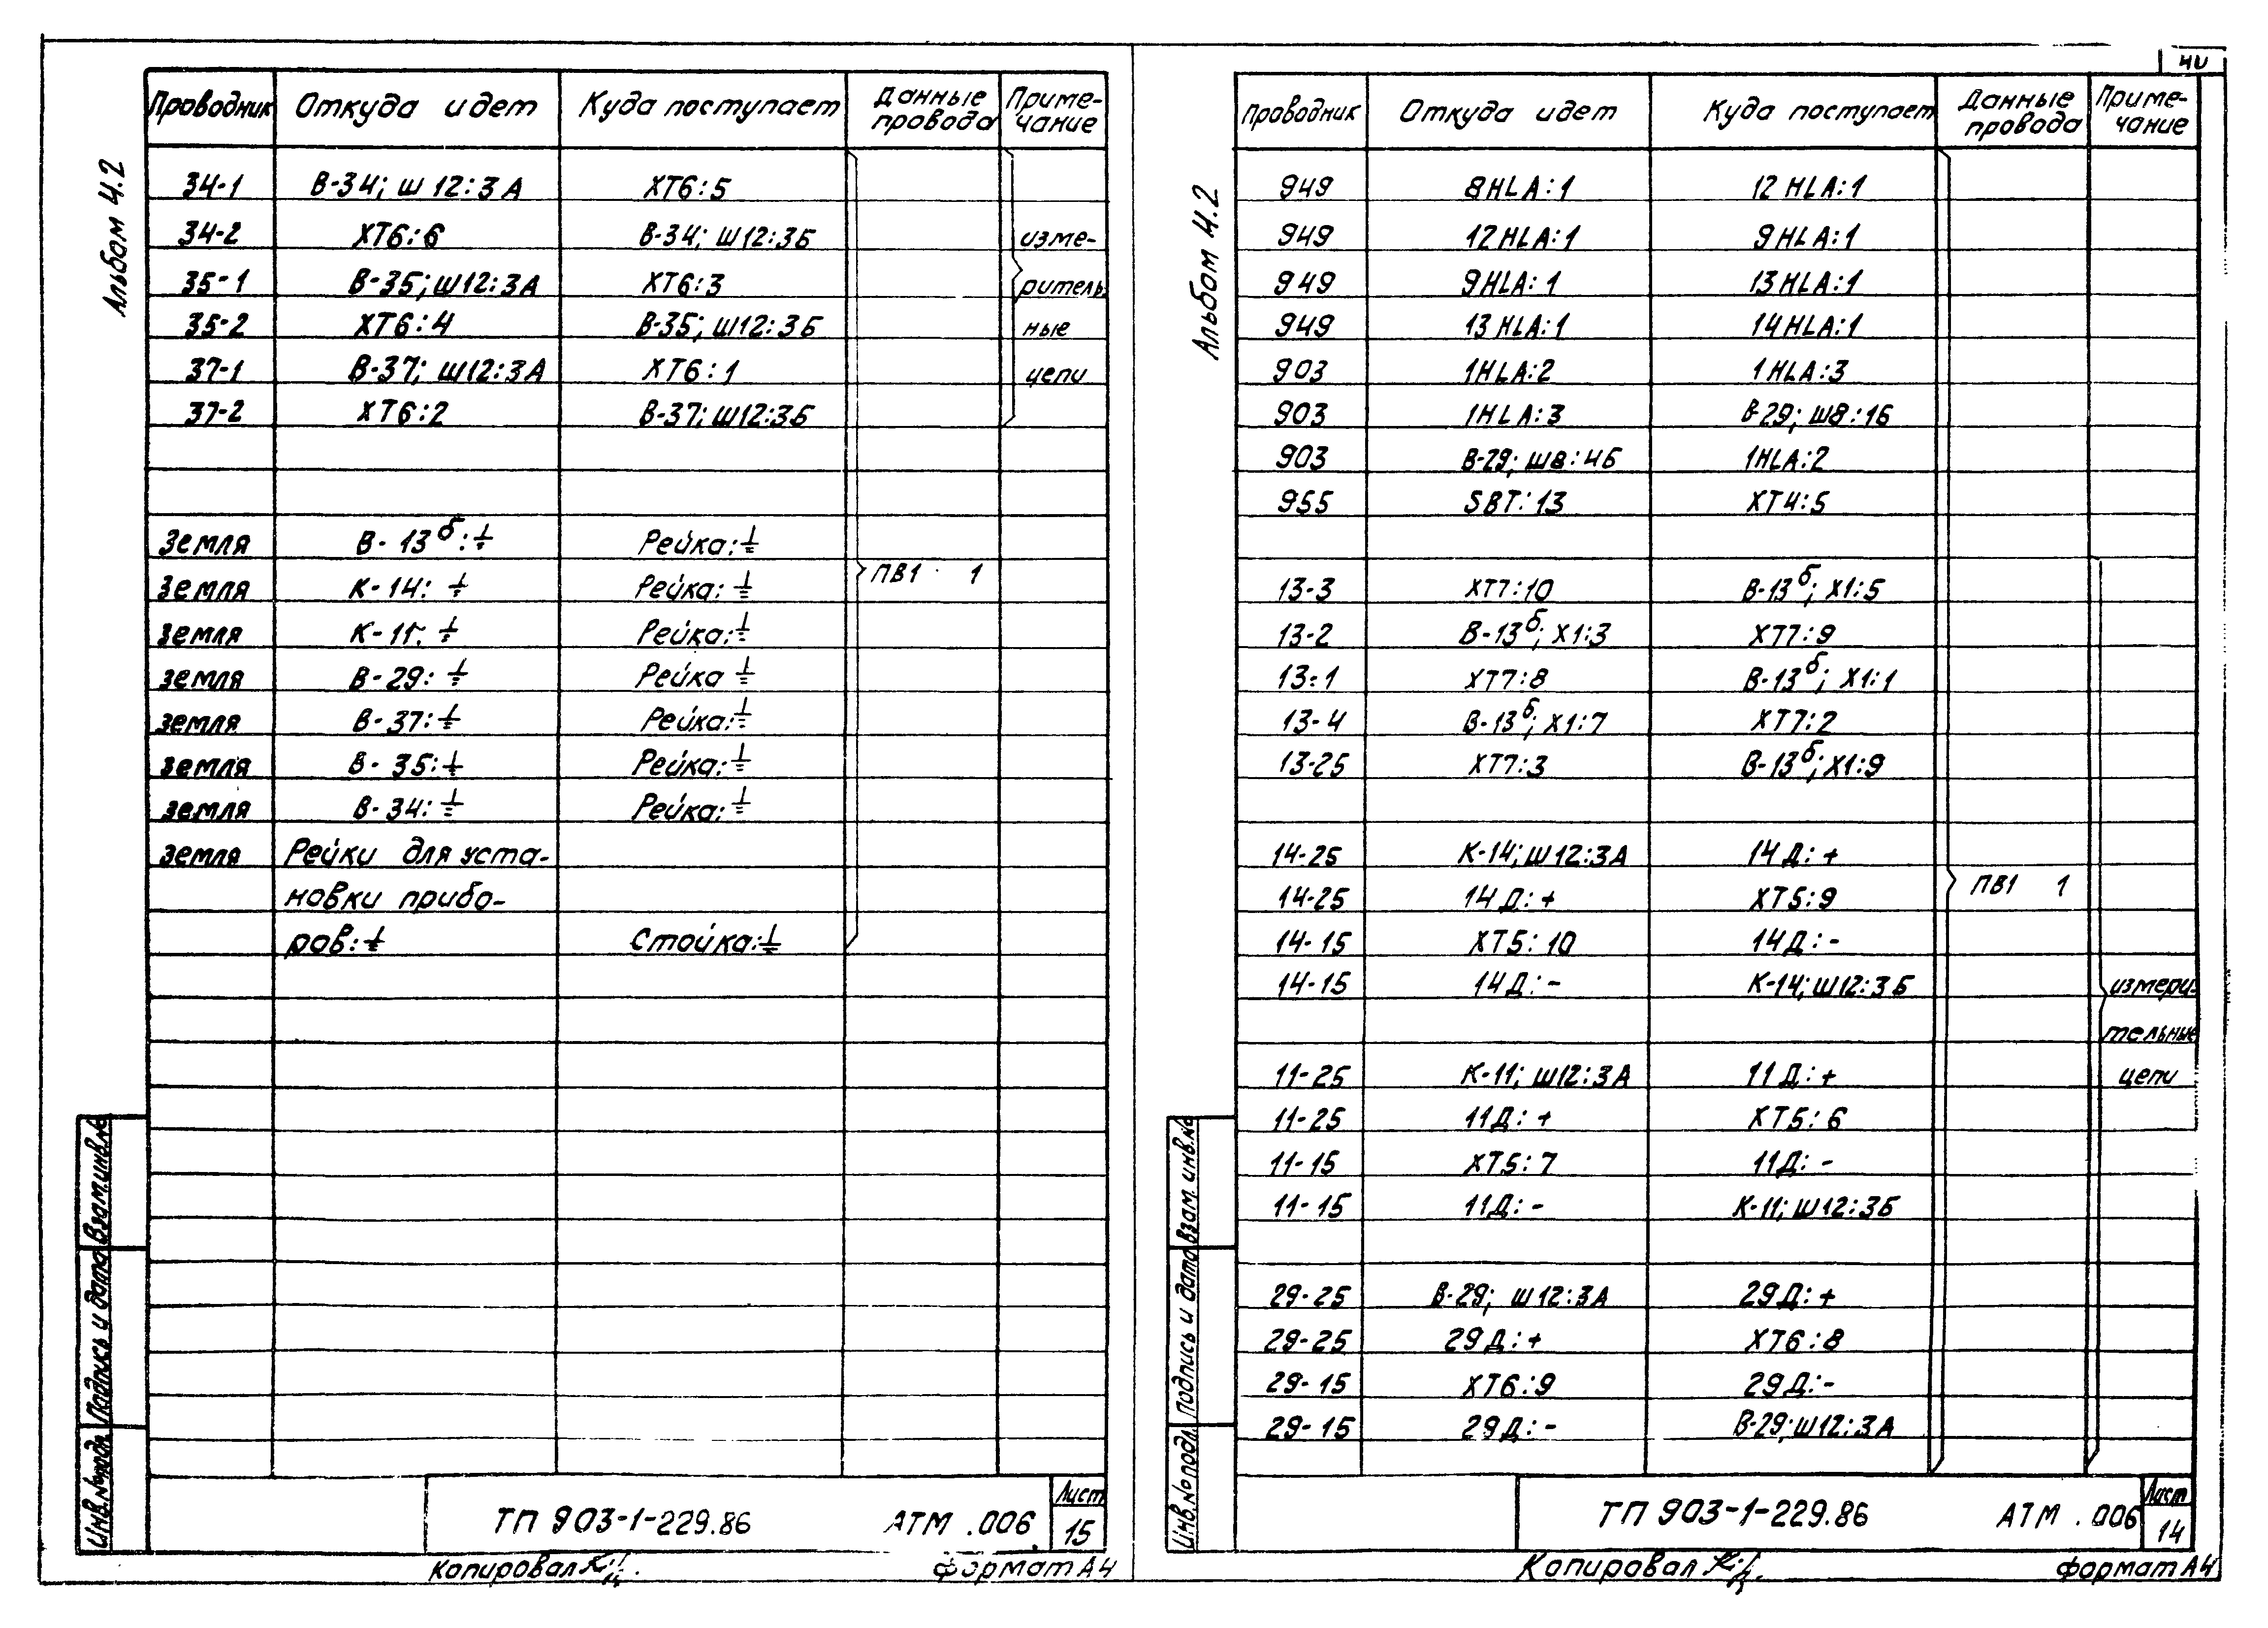 40
Альбом 4.2
Проводник Откуда идет Куда поступает Данные провода Приме-чание
34-1 В-34; Ш12:3А ХТ6:5
34-2 ХТ6:6 В-34; Ш12:3Б изме-
35-1 В-35; Ш12:3А ХТ6:3 ритель
35-2 ХТ6:4 В-35; Ш12:3Б ные
37-1 В-37; Ш12:3А ХТ6:1 цепи
37-2 ХТ6:2 В-37; Ш12:3Б
Земля В-13б:⏚ Рейка:⏚
ПВ1 1
Земля К-14:⏚ Рейка:⏚
Земля К-11:⏚ Рейка:⏚
Земля В-29:⏚ Рейка ⏚
Земля В-37:⏚ Рейка:⏚
Земля В-35:⏚ Рейка:⏚
Земля В-34:⏚ Рейка:⏚
Земля Рейки для уста-
новки прибо-
ров:⏚ Стойка:⏚
Взам.инв.№
Подпись и дата
Инв.№подл.
ТП 903-1-229.86 АТМ .006 Лист 15
Копировал формат А4
Альбом 4.2
Проводник Откуда идет Куда поступает Данные провода Приме-чание
949 8HLA:1 12HLA:1
949 12HLA:1 9HLA:1
949 9HLA:1 13HLA:1
949 13HLA:1 14HLA:1
903 1HLA:2 1HLA:3
903 1HLA:3 В-29; Ш8:1Б
903 В-29; Ш8:4Б 1HLA:2
955 SBT:13 ХТ4:5
13-3 ХТ7:10 В-13б; Х1:5
13-2 В-13б; Х1:3 ХТ7:9
13-1 ХТ7:8 В-13б; Х1:1
13-4 В-13б; Х1:7 ХТ7:2
13-25 ХТ7:3 В-13б; Х1:9
14-25 К-14; Ш12:3А 14Д:+
14-25 14Д:+ ХТ5:9 ПВ1 1
14-15 ХТ5:10 14Д:-
14-15 14Д:- К-14; Ш12:3Б измери-
тельные
11-25 К-11; Ш12:3А 11Д:+ цепи
11-25 11Д:+ ХТ5:6
11-15 ХТ5:7 11Д:-
11-15 11Д:- К-11; Ш12:3Б
29-25 В-29; Ш12:3А 29Д:+
29-25 29Д:+ ХТ6:8
29-15 ХТ6:9 29Д:-
29-15 29Д:- В-29; Ш12:3А
Взам.инв.№
Подпись и дата
Инв.№подл.
ТП 903-1-229.86 АТМ .006 Лист 14
Копировал формат А4